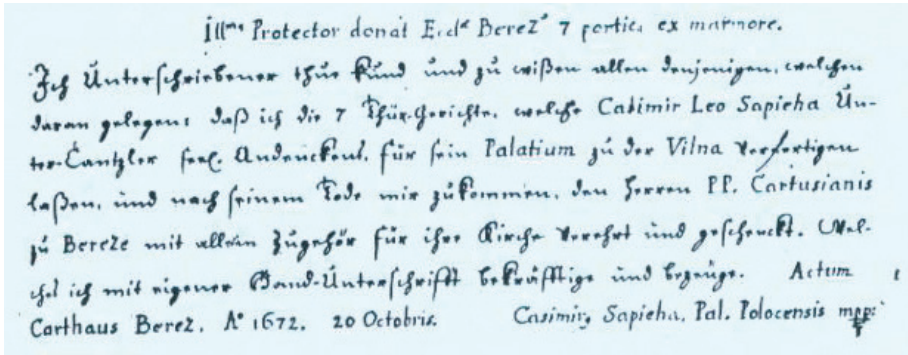 Illmus Protector donat Eccl. Berez. 7 portic. ex marmore.
Ich Unterschriebener thue kund und zu wißen allen denjenigen, welchen
daran gelegen: daß ich die 7 Thür-Gerichte, welche Casimir Leo Sapieha Un-
ter-Cantzler seel. Andenckens, für sein Palatium zu der Vilna verfertigen
laßen, und nach seinem Tode mir zukommen, den Herren PP. Cartusianis
zu Bereze mit allem Zugehör für ihre Kirche verehrt und geschenckt. Wel-
ches ich mit eigener Hand-Unterschrifft bekräfftige und bezeuge. Actum
Carthaus Berez. Aº 1672. 20 Octobris. Casimirꝰ Sapieha, Pal. Polocensis mpp: